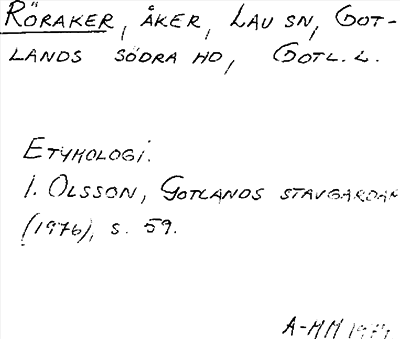 RÖRAKER, ÅKER, LAU SN, GOT-
LANDS SÖDRA HD, GOTL. L.
ETYMOLOGI.
I. OLSSON, GOTLANDS STAVGARDAR
(1976), S. 59.
A-MM